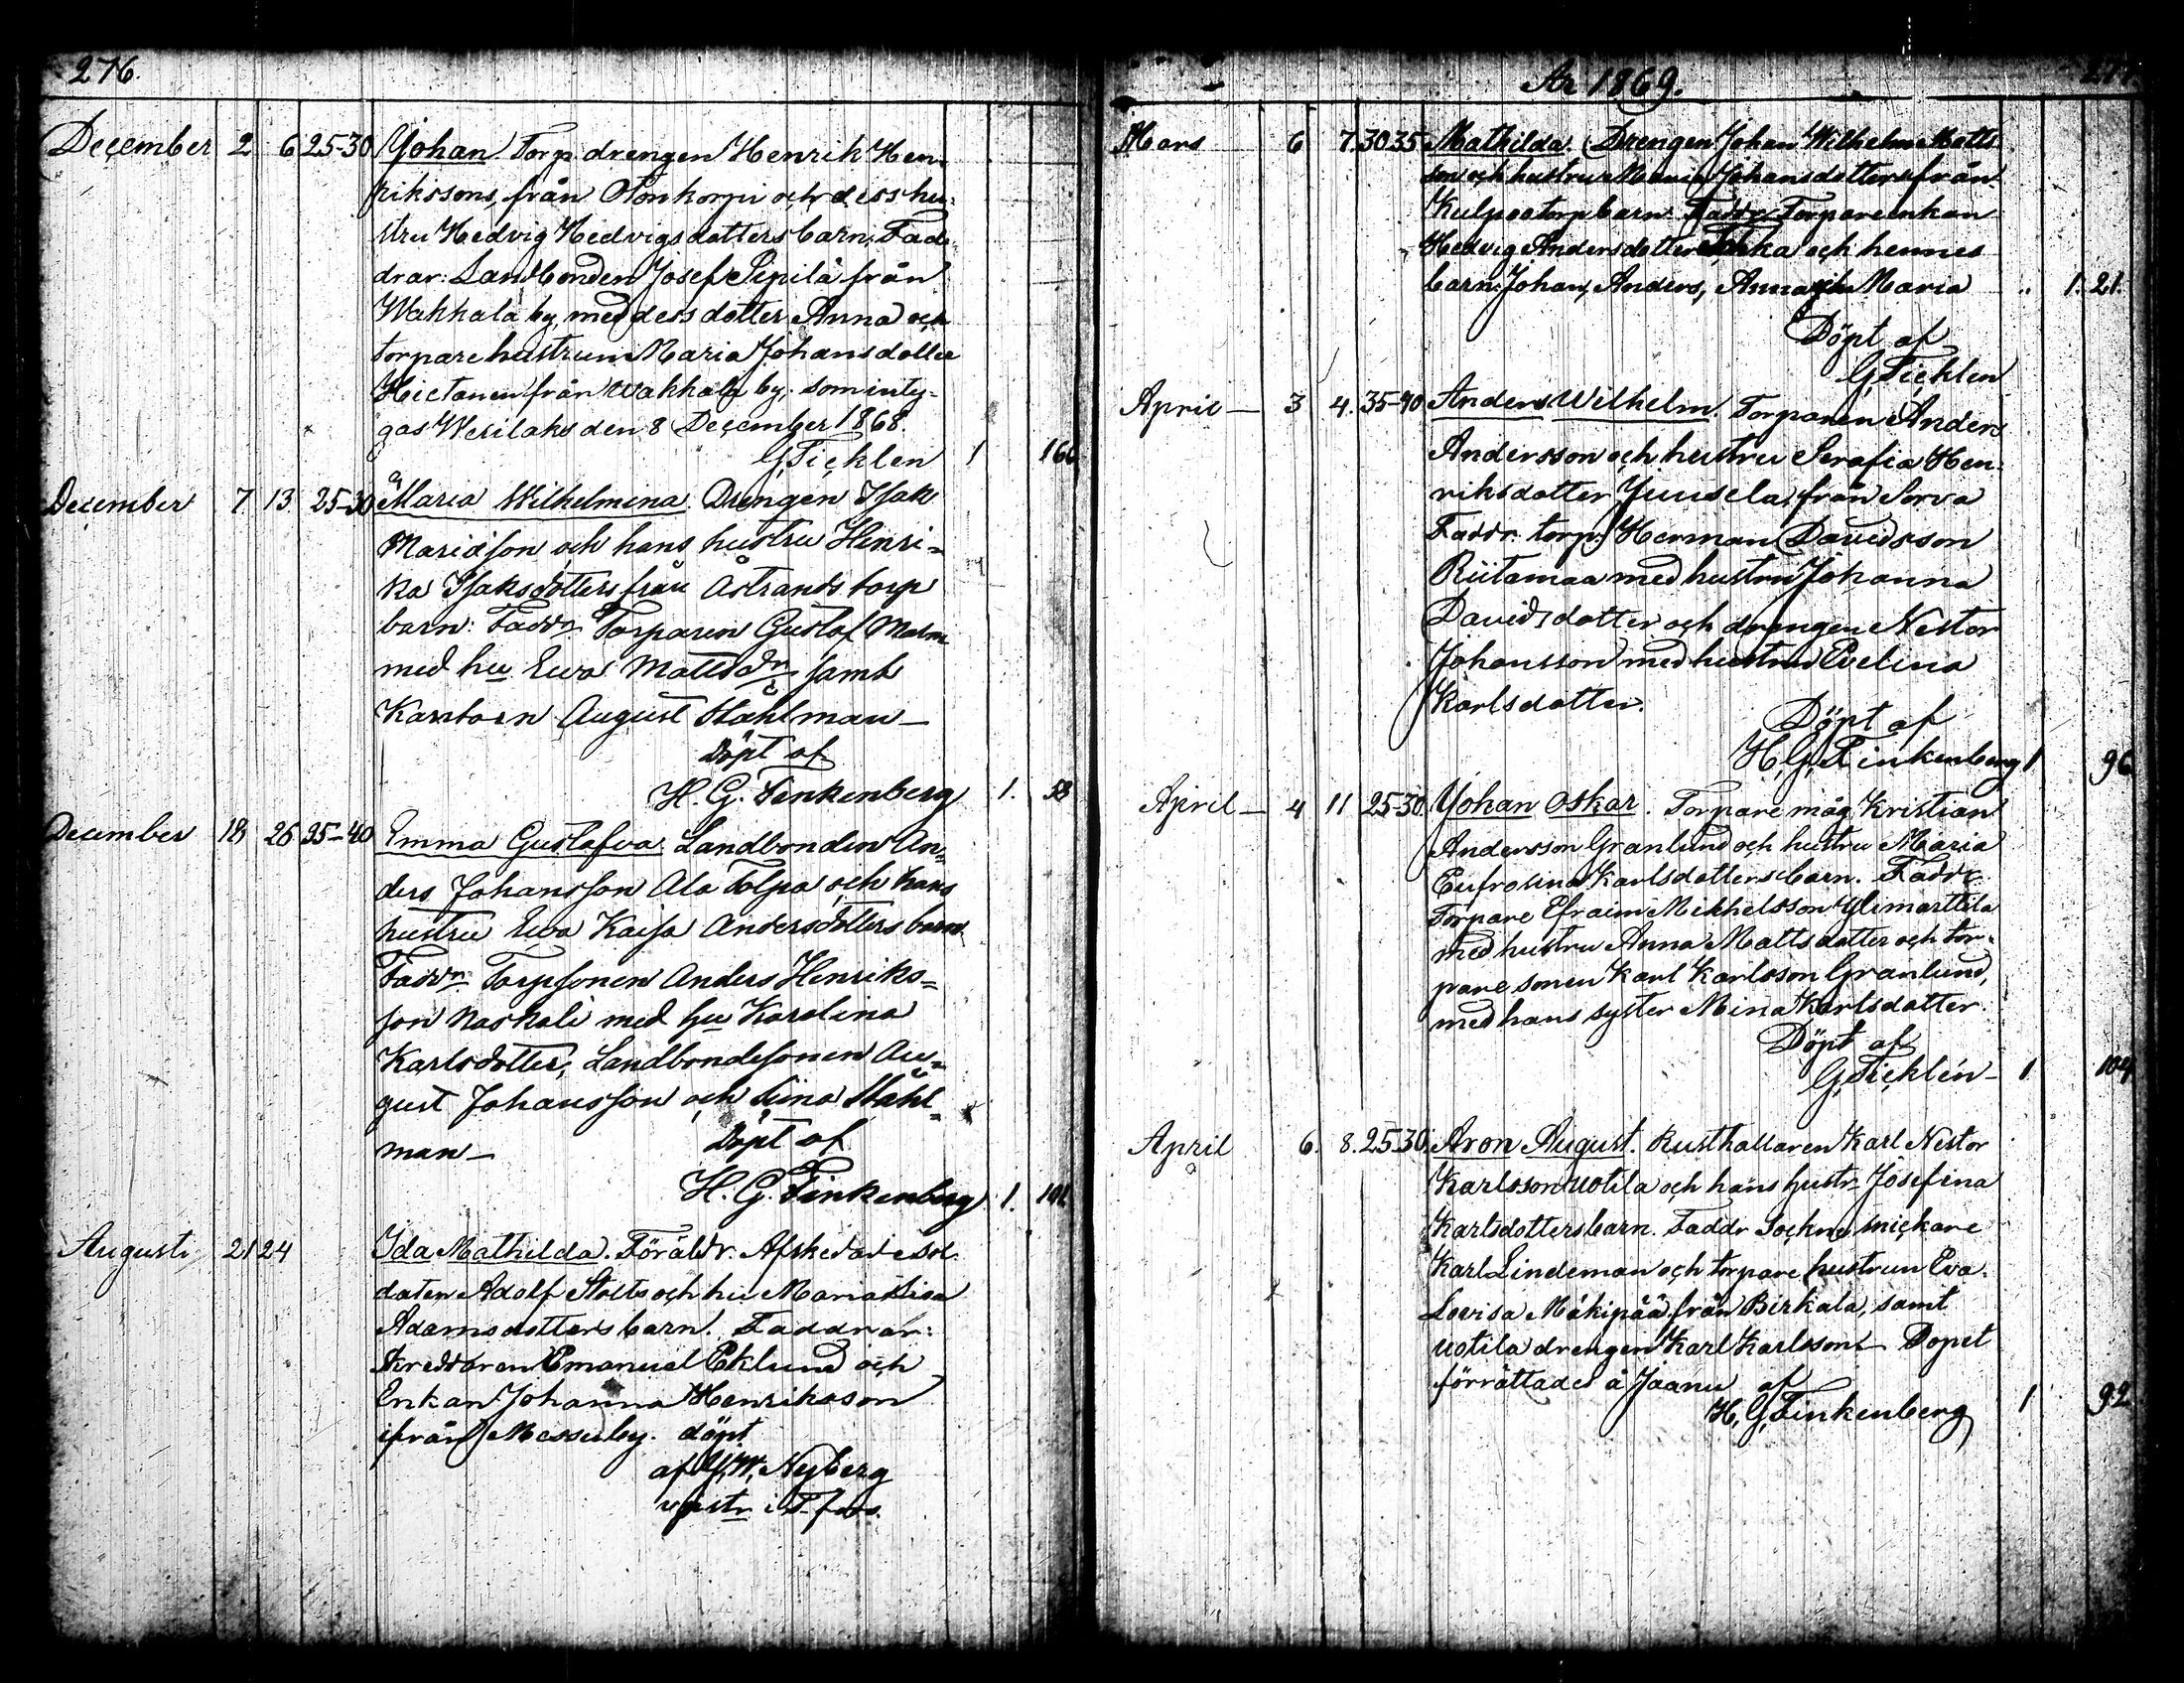 276.
December 2 6 25-30 Johan. Torp. drengen Henrik Hen-
rikssons, från Otonkorpi och dess hu-
stru Hedvig Hedvigsdotters barn. Fad-
drar: Landbonden Josef Pipilä från
Wakkala by, med dess dotter Anna och
torparehustrun Maria Johansdotter
Hietanen från Wakkala by, som inty-
gas Wesilaks den 8 December 1868.
G, Ticklen 1 166
December 7 13 25-30 Maria Wilhelmina. Drengen Isak
Mariæson och hans hustru Henri-
ka Isaksdotters från Åstrands torp
barn: Faddr Torparen Gustaf Malm
med hu Ewa Mattsdr samt
August Ståhlman —
Döpt af
H. G. Finkenberg 1. 53
December 18 26 35-40 Emma Gustafva. Landbonden An-
ders Johansson Ala Tolpa och hans
hustru Ewa Kaisa Andersdotters barn
Faddr Torpsonen Anders Henriks-
son Kaskali med hu Karolina
Karlsdotter, Landbondesonen Au-
gust Johansson och Stina Ståhl-
man — Döpt af
H. G. Finkenberg 1. 101
Augusti 21 24 Ida Mathilda. Föräldr. Afskedade sol-
daten Adolf Stolts och hu Maria Lisa
Adamsdotters barn. Faddrar:
Skreddaren Emanuel Eklund och
Enkan Johanna Henriksson
ifrån Messuby. döpt
af G, W, Nyberg
i T-fors.
År 1869. 277
Mars 6 7. 30 35 Mathilda. Drengen Johan Wilhelm Matts
son och hustru Maria Johansdotters från
Kulpootorp barn. Faddr. Torpareenkan
Hedvig Andersdotter och hennes
barn: Johan, Anders, Anna och Maria „ 1. 21.
Döpt af
G, Ticklen
April — 3 4. 35-40 Anders Wilhelm. Torparen Anders
Andersson och hustru Serafia Hen-
riksdotter Juusela, från Sorva
Faddr. torp. Herman Davidsson
Riitamaa med hustru Johanna
Davidsdotter och drengen Nestor
Johansson med hustru Evelina
Karlsdotter.
Döpt af
H, G, Finkenberg 1 96
April — 4 11 25-30. Johan Oskar. Torpare måg Kristian
Andersson Granlund och hustru Maria
Eufrosina Karlsdotters barn. Faddr.
Torpare Efraim Mikkelsson Ylimarttila
med hustru Anna Mattsdotter och tor-
pare sonen Karl Karlsson Granlund,
med hans syster Mina Karlsdotter.
Döpt af
G, Ticklén — 1 104
April 6. 8. 25 30. Aron August. Rusthållaren Karl Nestor
Karlsson Uotila och hans hustr. Josefina
Karlsdotters barn. Faddr Sockne snickare
Karl Lindeman och torpare hustrun Eva
Lovisa Mäkipää från Birkala, samt
Uotila drengen Karl Karlsson — Dopet
förrättades å Jaanu af
H, G, Finkenberg 1 92